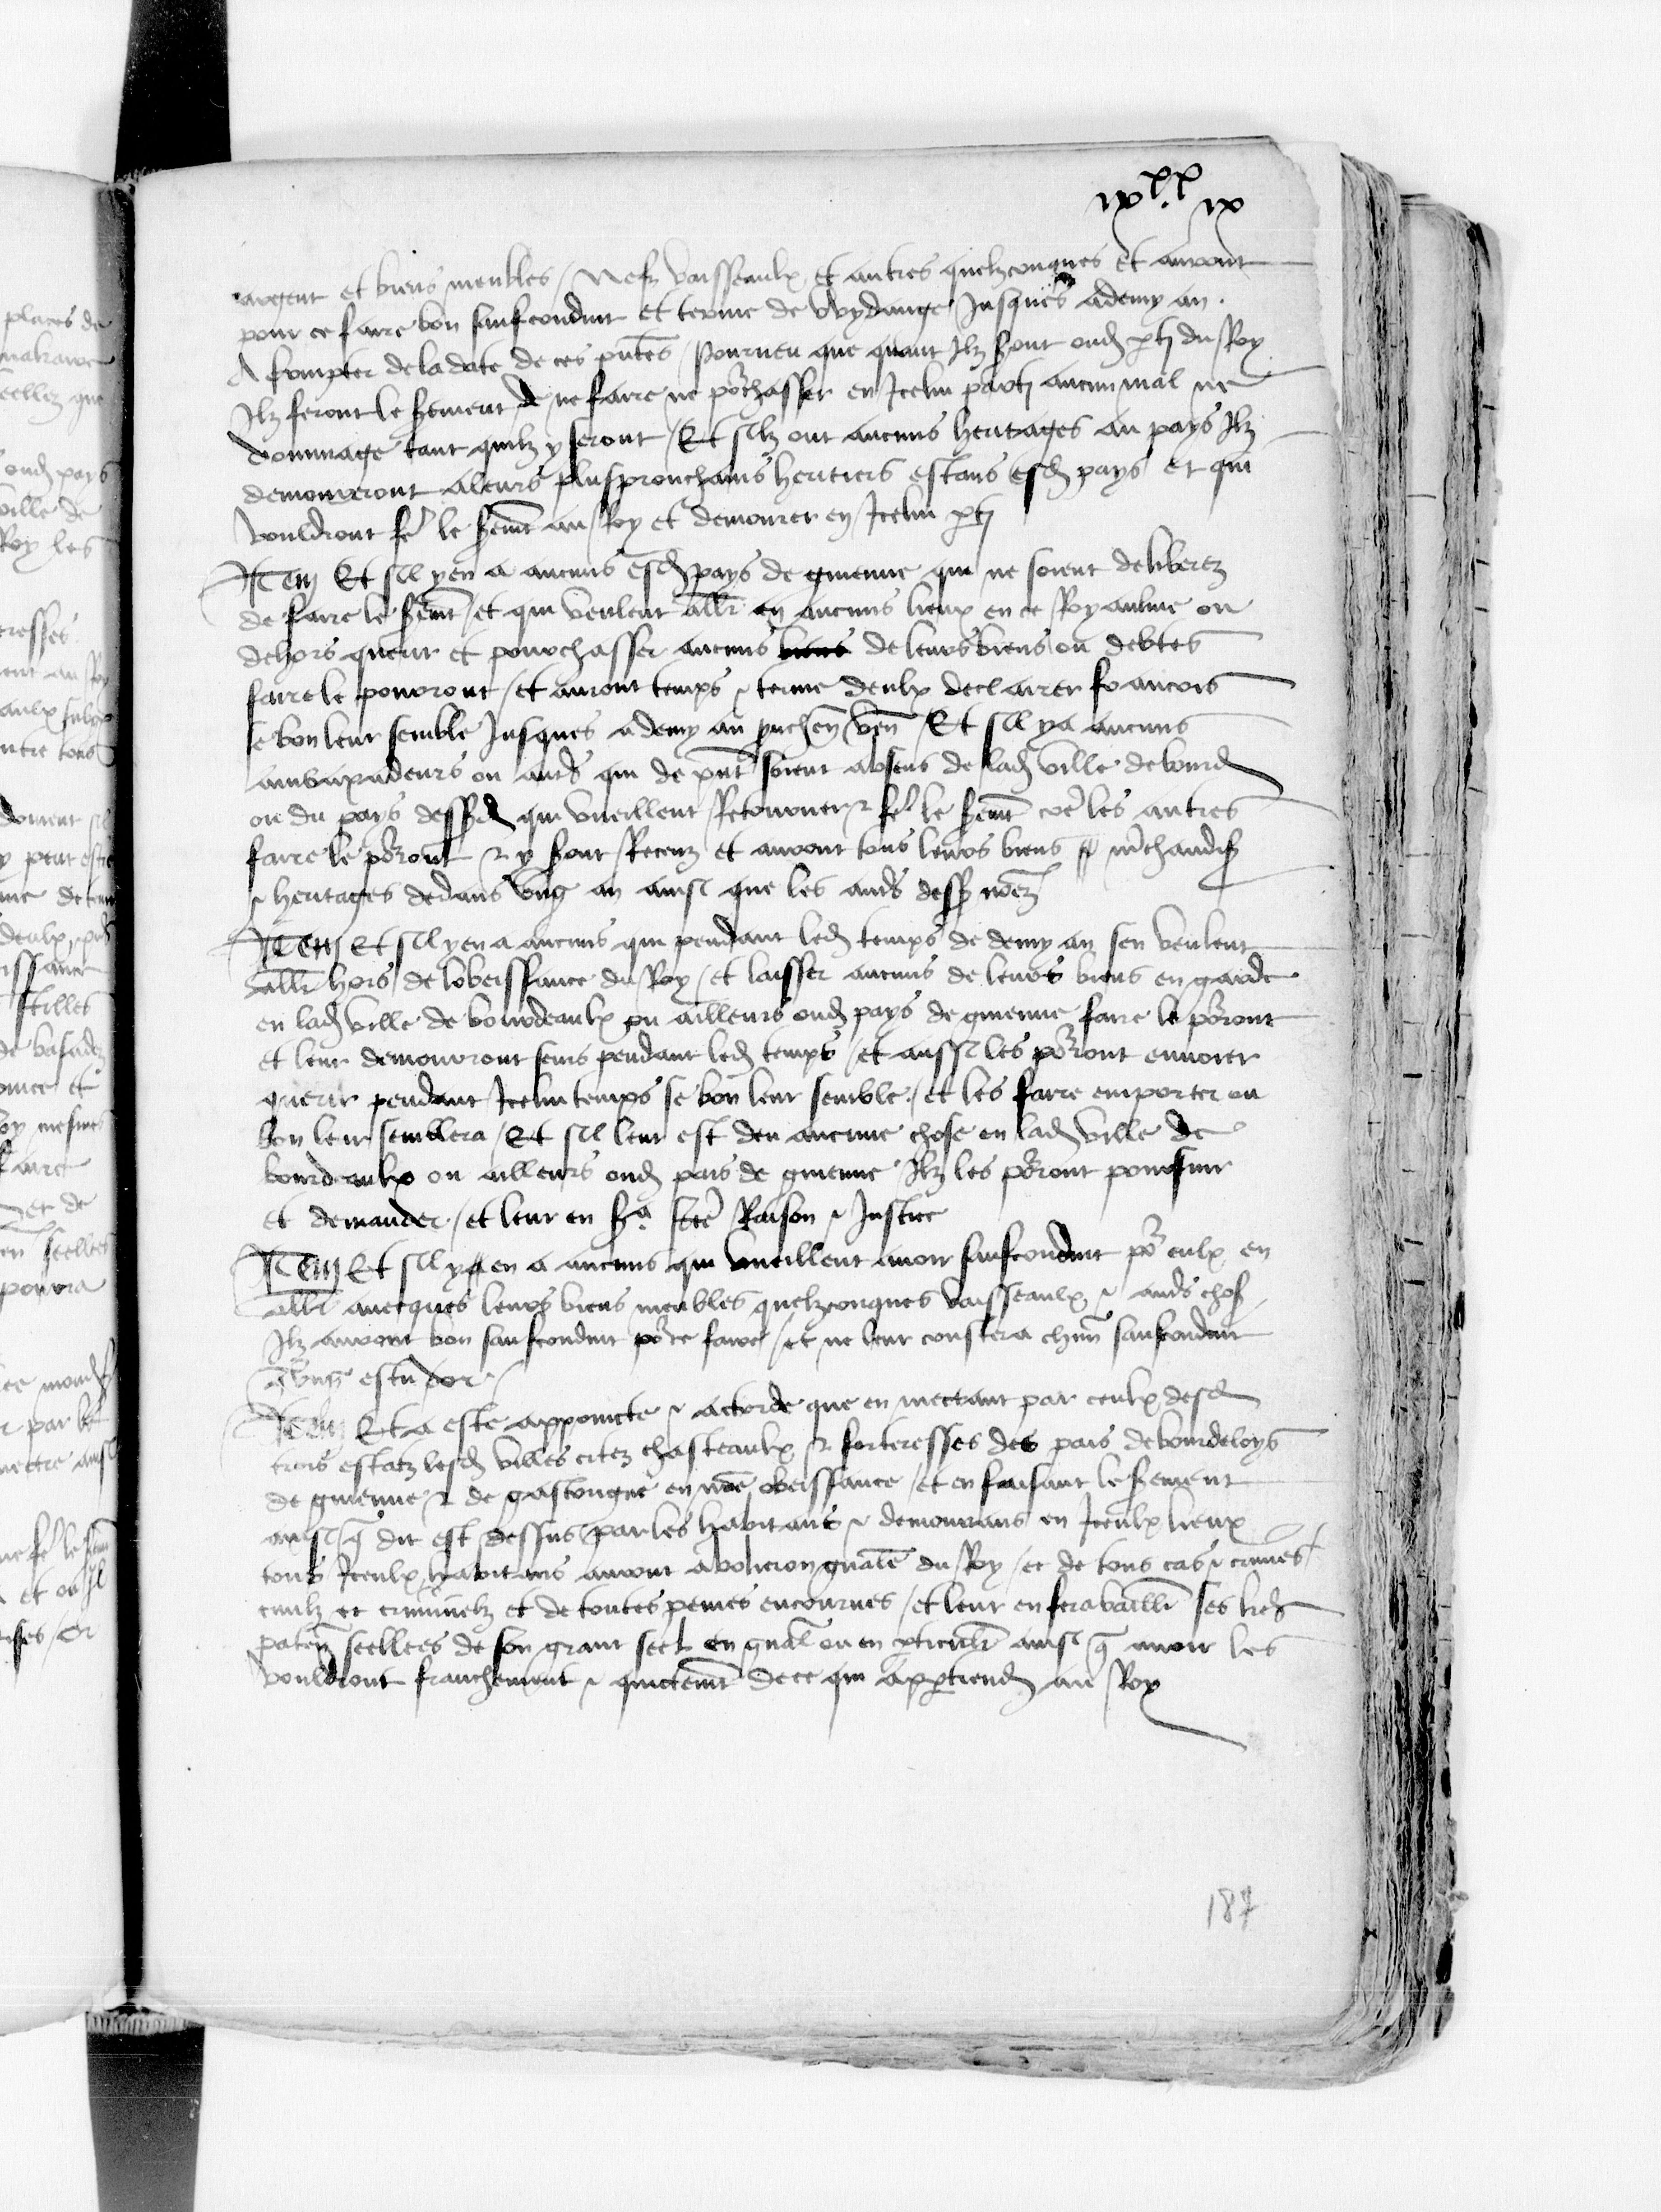 ixxx ix
argent et biens meubles / Nefz vaisseaulx et autres quelzconques et auront
pour ce faire bon saufconduit et terme de wydange / Jusques a demy an .
A compter de la date de ces pntes / Pourveu que quant Ilz seront oud pti du Roy
Ilz feront le serement de ne faire ne pochasser en Icelui parti aucun mal ne
dommage tant quilz y seront / Et silz ont aucuns heritages au pays Ilz
demourront a leurs plus prouchains heritiers estans esd pays et qui
vouldront fe le semt au Roy et demourer en Icelui pti
Item Et sil y en a aucuns esd pays de guienne qui ne soient deliberez
de faire le semt / et qui veulent aller en aucuns lieux en ce Royaulme ou
dehors querir et pourchasser aucuns biens de leurs biens ou debtes
faire le pourront / et auront temps & terme deulx declairer francois
se bon leur semble Jusques a demy an pchen ven / Et sil y a aucuns
ambaxadeurs ou auts qui de pnt soient absens de lad ville de bourd
ou du pays dessd qui vueillent Retourner & fe le semt coe les autres
faire le porront & y sont Receuz et auront tous leurs biens mchandis
& heritages dedans ung an ainsi que les auts dess nomez
Item Et sil y en a aucuns qui pendant led temps de demy an sen veulent
aller hors de lobeissance du Roy / et laisser aucuns de leurs biens en garde
en lad ville de bourdeaulx ou ailleurs oud pays de guienne faire le porront
et leur demourront seurs pendant led temps / et aussi les porront envoier
querir pendant Icelui temps se bon leur semble / et les faire emporter ou
bon leur semblera / Et sil leur est deu aucune chose en lad ville de
bourdeaulx ou ailleurs oud pais de guienne Ilz les porront poursuir
et demander / et leur en sa fcte Raison & Justice
Item Et sil y en a aucuns qui vueillent avoir saufconduit po eulx en
aller avecques leurs biens meubles quelzconques vaisseaulx & auts chos
Ilz auront bon saufconduit po ce faire / et ne leur coustera chun saufconduit
q ung escu dor
Item Et a este appoincte & accorde que en mectant par ceulx desd
trois estatz lesd villes citez chasteaulx & forteresses des pais de bourdeloys
de guienne & de gascongne en nre obeissance / et en faisant le serement
ainsi q dit est dessus par les habitans & demourans en Iceulx lieux
tous Iceulx habitans auront abolicion gnale du Roy / et de tous cas & crimes
civilz et criminelz et de toutes peines encourues / et leur en fera baillr ses lres
paten seellees de son grant seel en gnal ou en pticulr ainsi q avoir les
vouldront franchement & quictemt de ce qui appartiend au Roy
187